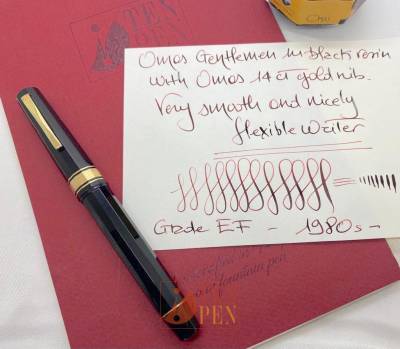 PEN
Omas Gentlemen in black resin
with Omas 14 ct gold nib.
Very smooth and nicely
flexible Writer
Grade EF - 1980s -
fountain pen
PEN